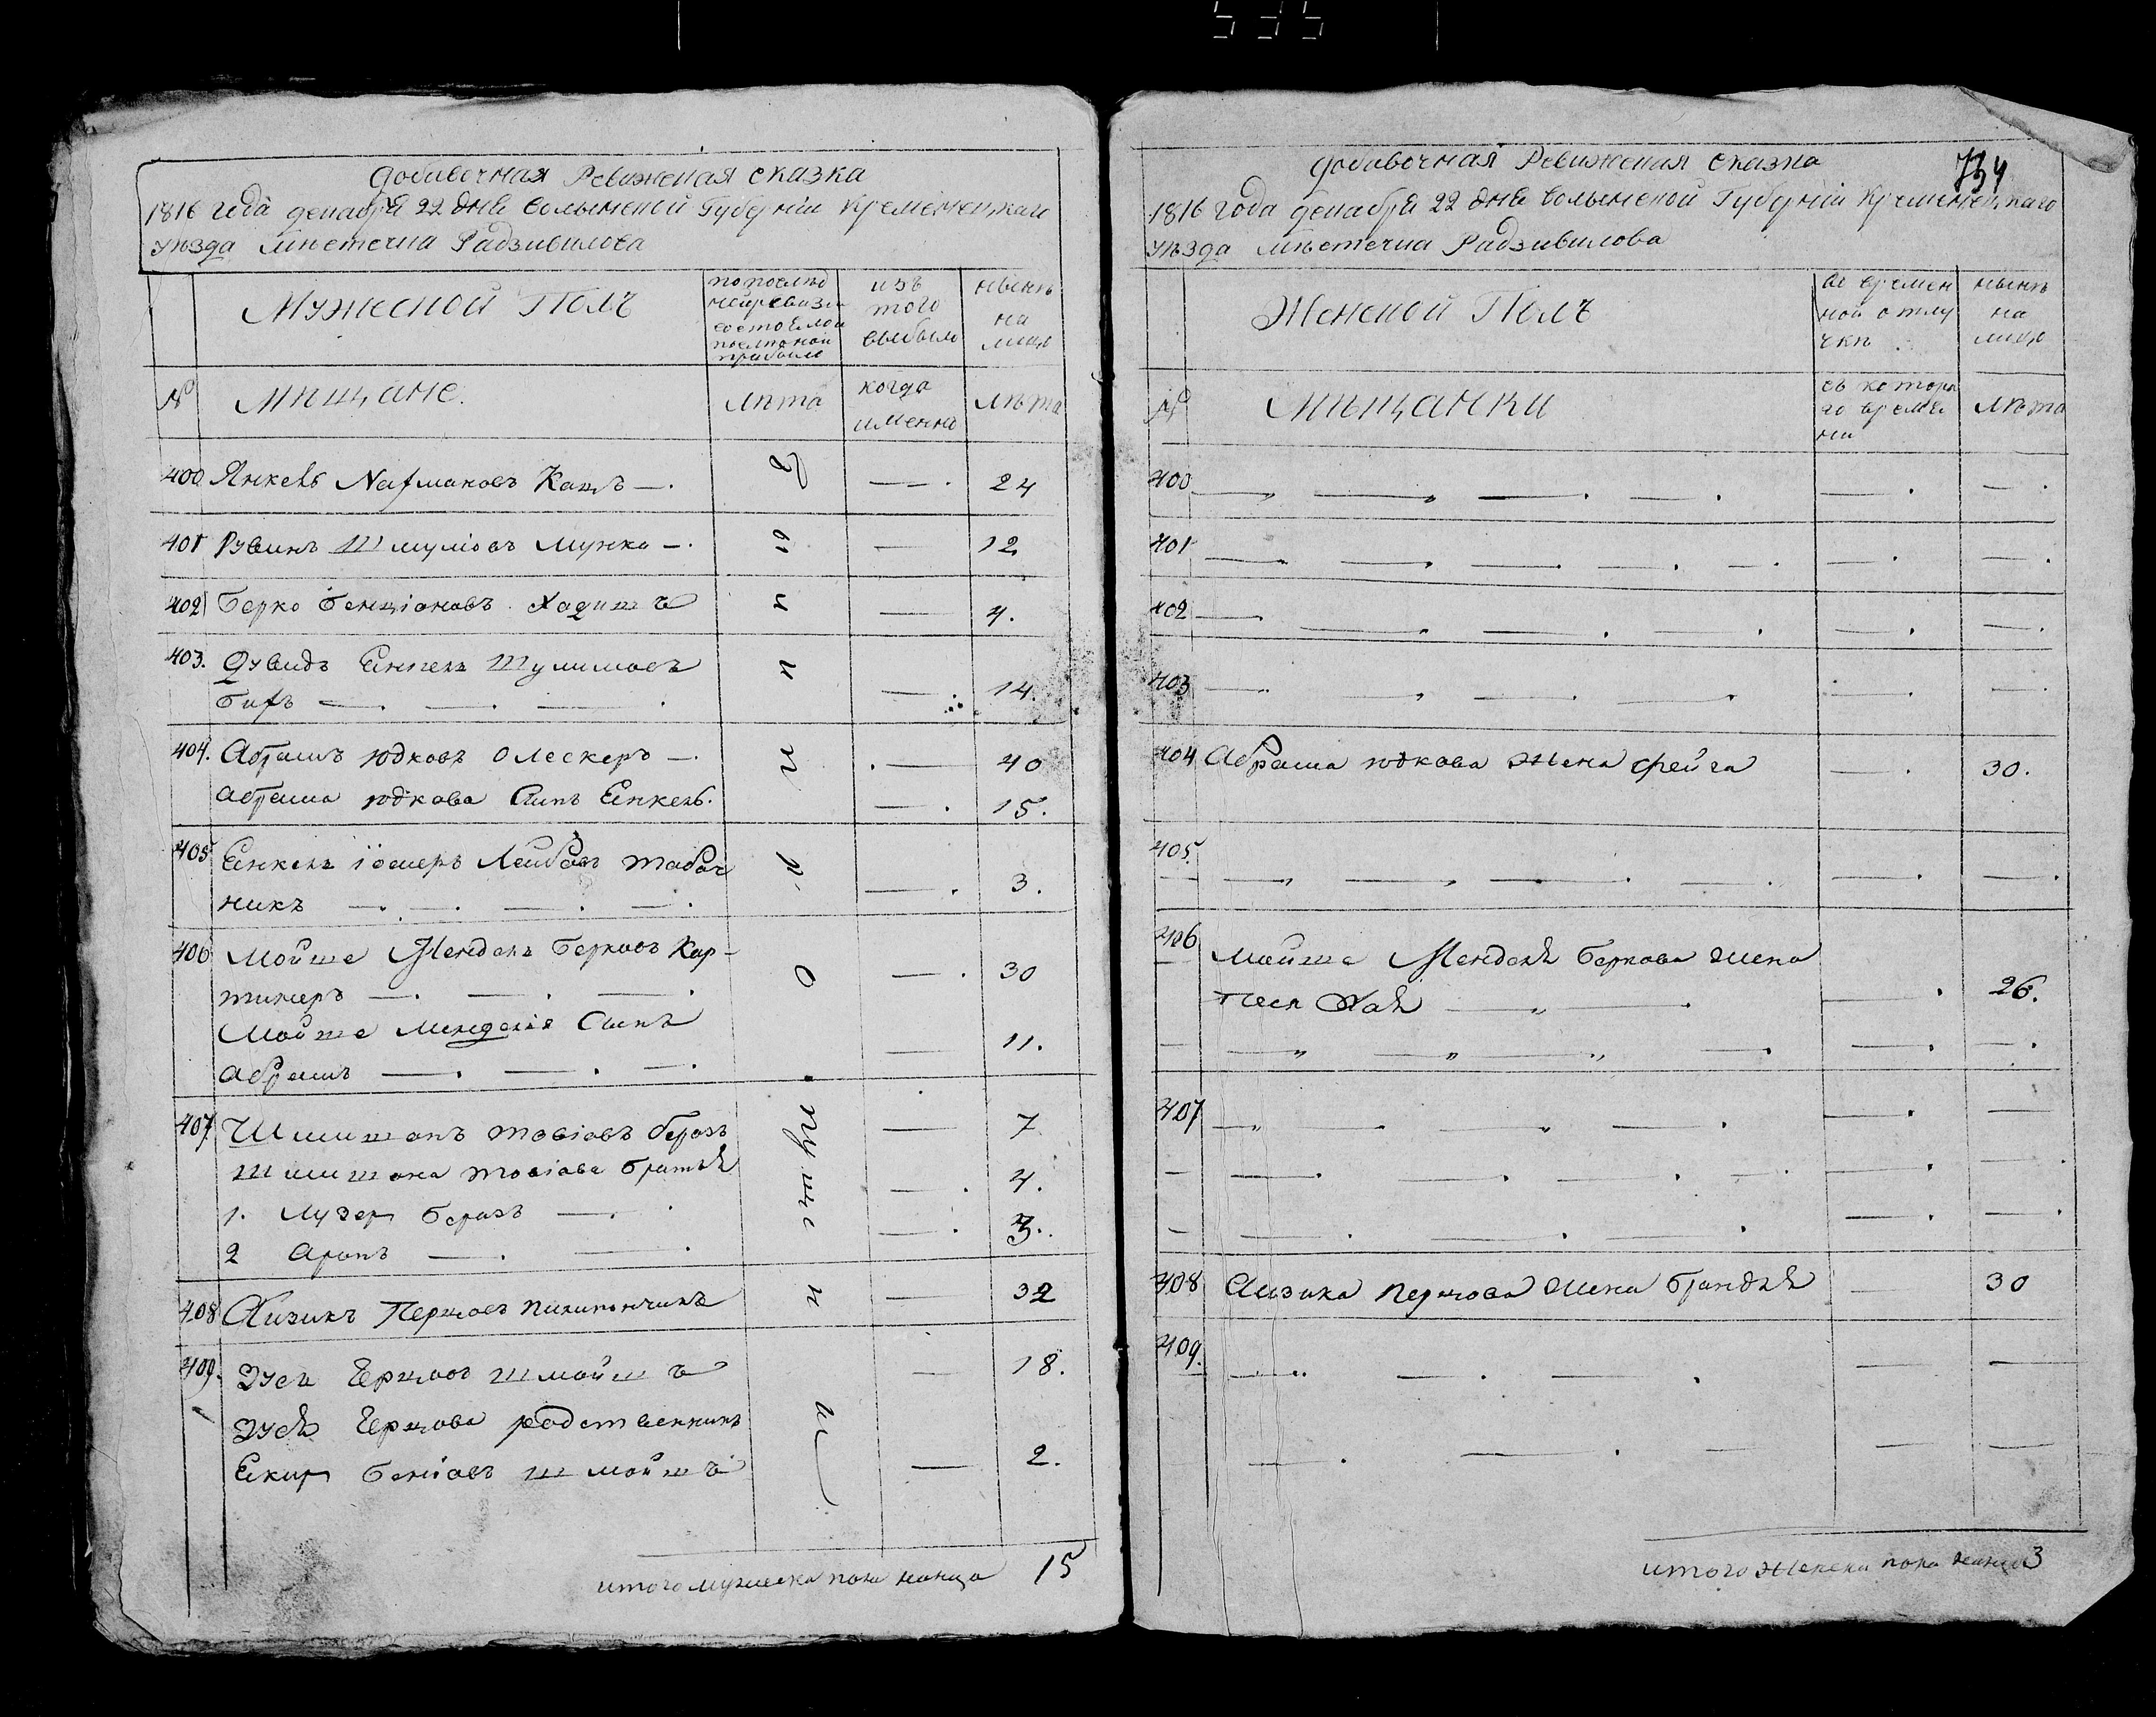 535
добавочная Ревижская сказка
1816 года декабря 22 дня волынской Губернии Кременецкаго
уѣзда мѣстечка Радзивилова
Мужеской Полъ
по послѣд
ней ревизи
состояло и
послѣ оной
прибыло
изъ
того
выбыло
нынѣ
на
лицо
№
мѣщане.
лѣта
когда
именно
лѣта
400 Янкель Нахмановъ Кацъ — 24
401 Рувинъ Шмуліовъ Мунка — 12
402 Берко Бенціоновъ Хадишъ — 4.
403. Дувидъ Енкель Шулимовъ
Бихъ — 14.
404. Абрамъ Юдковъ Олескеръ — 40
Абрама Юдкова Сынъ Енкель. — 15.
405 Енкель Іосиеръ Лейбовъ Табач
никъ — 3.
406 Мойше Мендель Берковъ Кар-
тинеръ — 30
Мойше Менделя Сынъ
Абрамъ — 11.
407. Шлиманъ Товіовъ Беразъ — 7
Шлимана Товіова братья — 4.
1. Лузер Беразъ — 3.
2 Аронъ —
408 Айзикъ Перцовъ — 32
409. Зусь Герцовъ Шмойшъ — 18.
Зуся Герцова родственникъ
Екир Беніовъ Шмойшъ — 2.
итого мужеска пола налицо 15
734
добавочная Ревижская сказка
1816 года декабря 22 дня волынской Губерніи Кременецкаго
уѣзда мѣстечка Радзивилова
Женской Полъ
во времен
ной отлу
чкѣ
нынѣ
на
лицо
№
мѣщанки
съ котора
го време
ни
лѣта
400
401
402
403
404 Абрама Юдкова жена Фейга — 30.
405.
406 Мойше Менделя Беркова жена
Песя Хая — 26.
407
408 Айзика Перцова жена Брандля — 30
409.
итого женска пола налицо 3